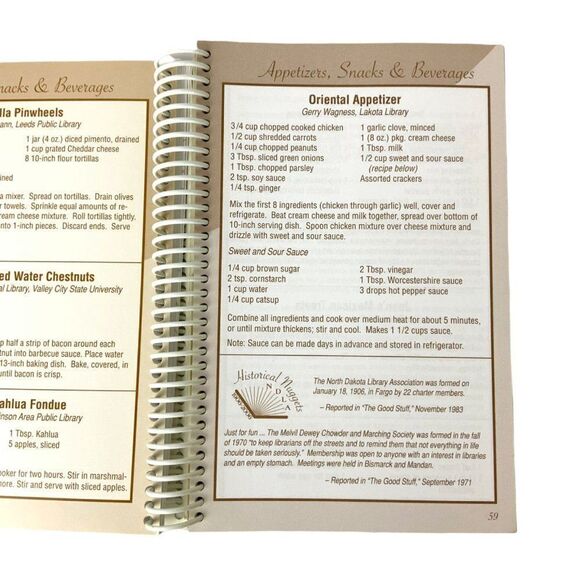 nacks & Beverages
lla Pinwheels
ann, Leeds Public Library
1 jar (4 oz.) diced pimento, drained
1 cup grated Cheddar cheese
8 10-inch flour tortillas
ined
a mixer. Spread on tortillas. Drain olives
r towels. Sprinkle equal amounts of re-
ream cheese mixture. Roll tortillas tightly.
nto 1-inch pieces. Discard ends. Serve
ed Water Chestnuts
al Library, Valley City State University
p half a strip of bacon around each
tnut into barbecue sauce. Place water
13-inch baking dish. Bake, covered, in
until bacon is crisp.
ahlua Fondue
inson Area Public Library
1 Tbsp. Kahlua
5 apples, sliced
ooker for two hours. Stir in marshmal-
more. Stir and serve with sliced apples.
Appetizers, Snacks & Beverages
Oriental Appetizer
Gerry Wagness, Lakota Library
3/4 cup chopped cooked chicken
1/2 cup shredded carrots
1/4 cup chopped peanuts
3 Tbsp. sliced green onions
1 Tbsp. chopped parsley
2 tsp. soy sauce
1/4 tsp. ginger
1 garlic clove, minced
1 (8 oz.) pkg. cream cheese
1 Tbsp. milk
1/2 cup sweet and sour sauce
(recipe below)
Assorted crackers
Mix the first 8 ingredients (chicken through garlic) well, cover and
refrigerate. Beat cream cheese and milk together, spread over bottom of
10-inch serving dish. Spoon chicken mixture over cheese mixture and
drizzle with sweet and sour sauce.
Sweet and Sour Sauce
1/4 cup brown sugar
2 tbsp. cornstarch
1 cup water
1/4 cup catsup
2 Tbsp. vinegar
1 Tbsp. Worcestershire sauce
3 drops hot pepper sauce
Combine all ingredients and cook over medium heat for about 5 minutes,
or until mixture thickens; stir and cool. Makes 1 1/2 cups sauce.
Note: Sauce can be made days in advance and stored in refrigerator.
Historical Nuggets
NDLA
1906-2006
The North Dakota Library Association was formed on
January 18, 1906, in Fargo by 22 charter members.
– Reported in "The Good Stuff," November 1983
Just for fun ... The Melvil Dewey Chowder and Marching Society was formed in the fall
of 1970 "to keep librarians off the streets and to remind them that not everything in life
should be taken seriously." Membership was open to anyone with an interest in libraries
and an empty stomach. Meetings were held in Bismarck and Mandan.
– Reported in "The Good Stuff," September 1971
59